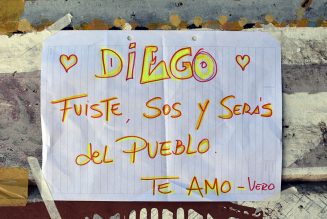 DIEGO
FUISTE, SOS Y SERÁS
del PUEBLO.
TE AMO - VERO